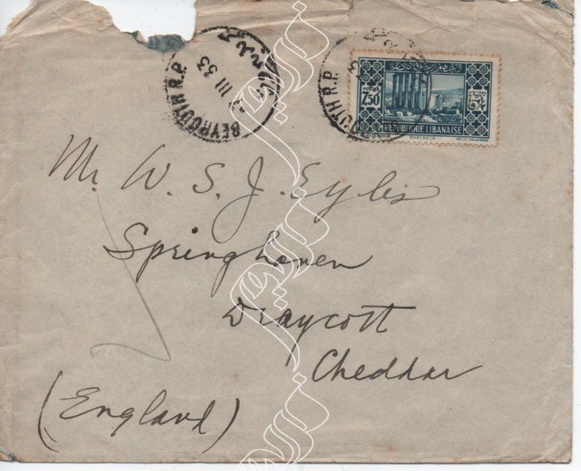 BEYROUTH R.P.
III 33
7P.50
REPUBLIQUE LIBANAISE
Mr. W. S. J. Eyles
Springhaven
Draycott
Cheddar
(England)